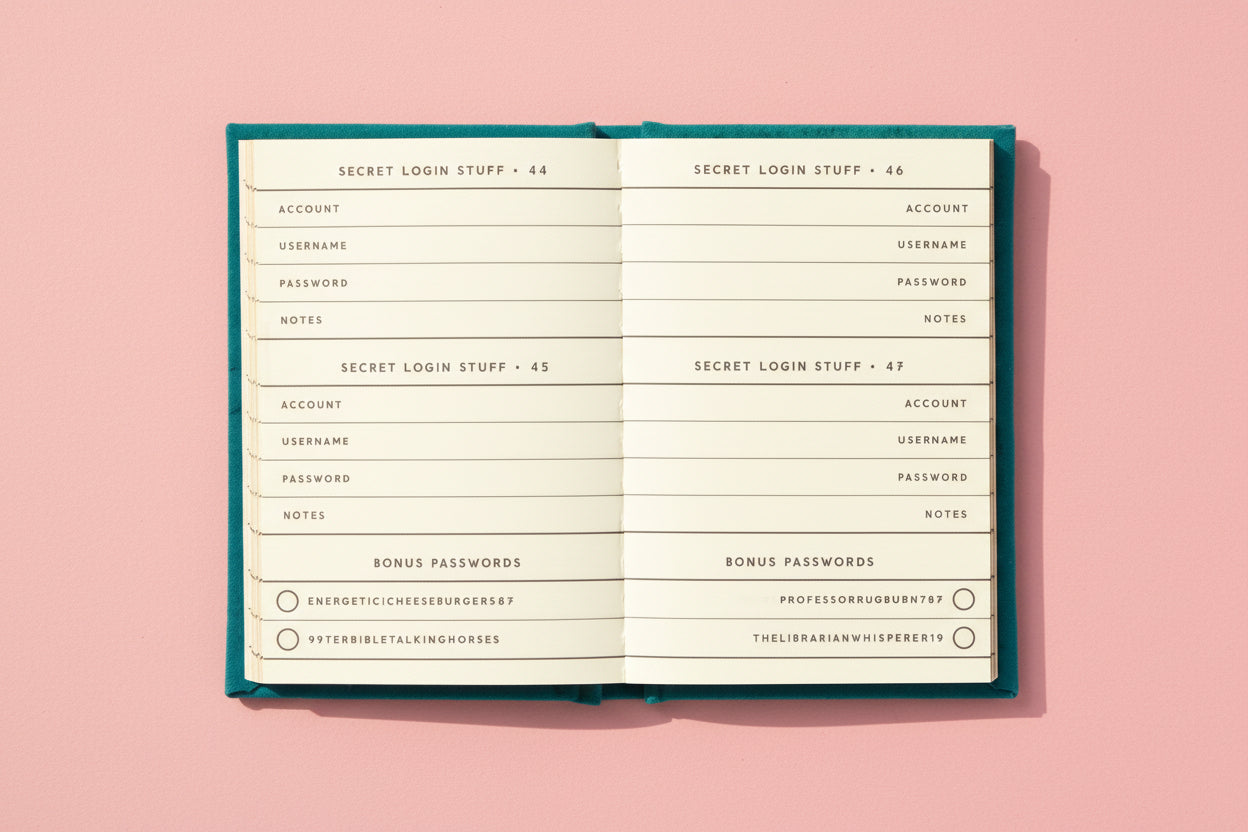 SECRET LOGIN STUFF • 44
ACCOUNT
USERNAME
PASSWORD
NOTES
SECRET LOGIN STUFF • 45
ACCOUNT
USERNAME
PASSWORD
NOTES
BONUS PASSWORDS
ENERGETICICHEESEBURGER587
99TERBIBLETALKINGHORSES
SECRET LOGIN STUFF • 46
ACCOUNT
USERNAME
PASSWORD
NOTES
SECRET LOGIN STUFF • 47
ACCOUNT
USERNAME
PASSWORD
NOTES
BONUS PASSWORDS
PROFESSORRUGBUBN787
THELIBRARIANWHISPERER19